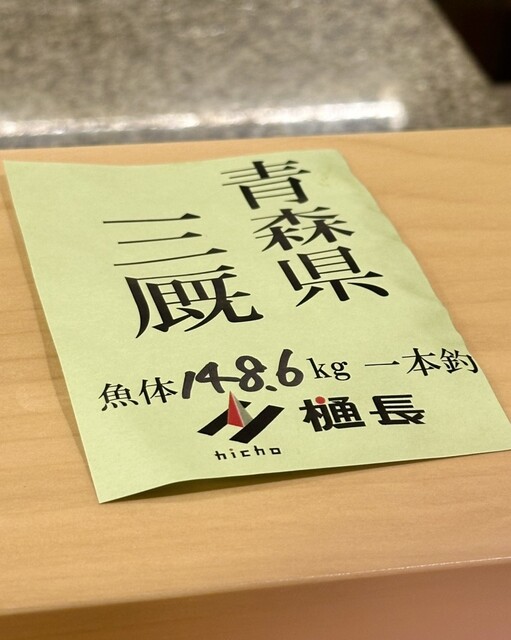 青森県
三厩
魚体148.6kg 一本釣
樋長
hicho